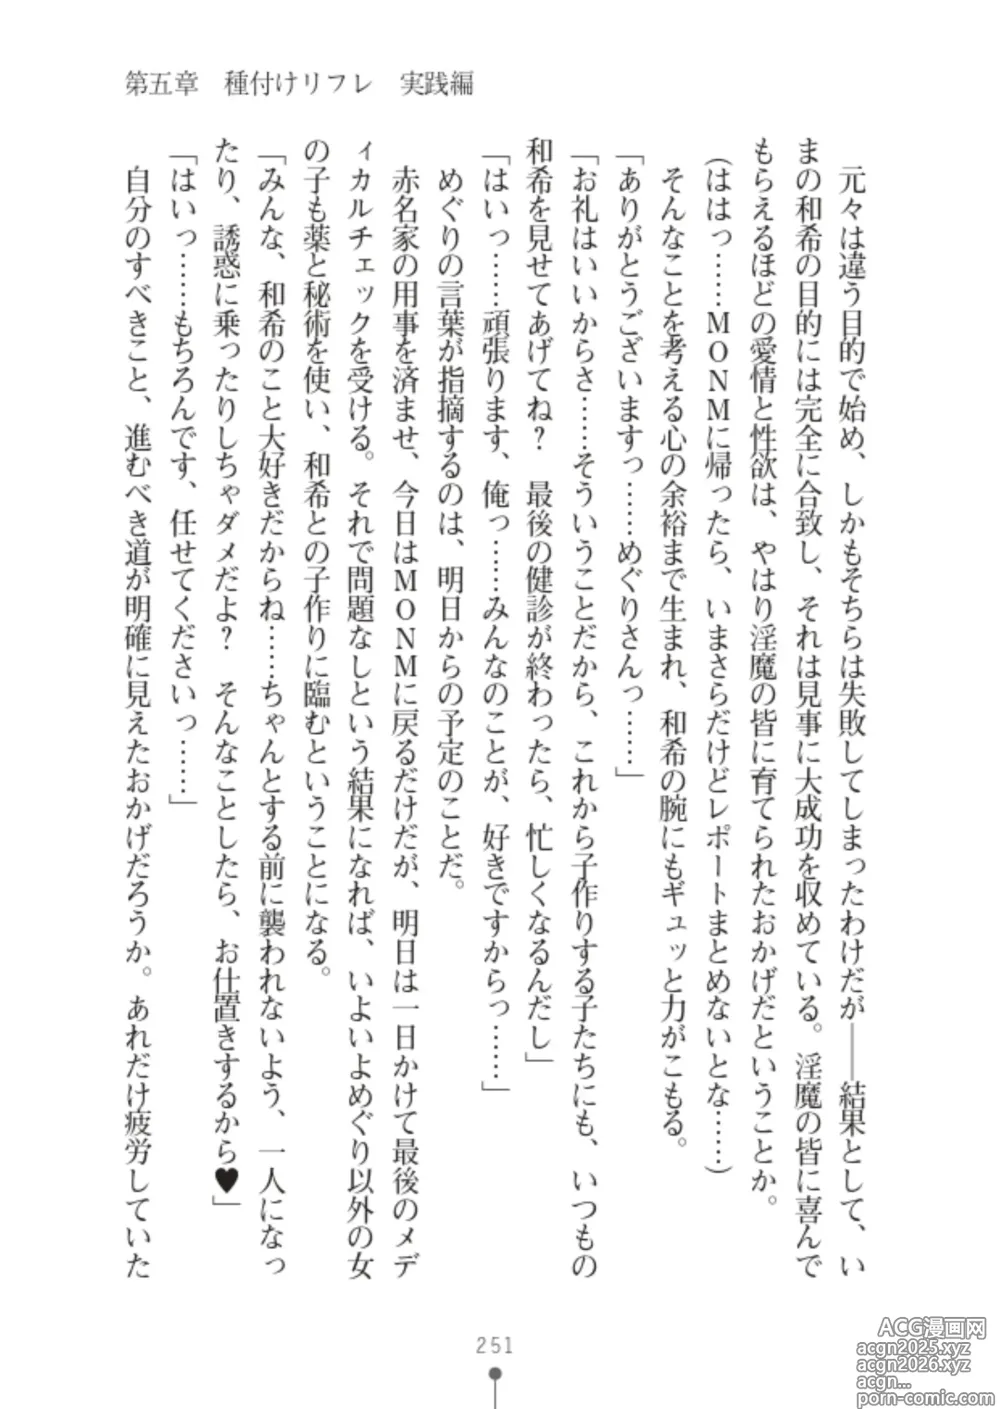 第五章　種付けリフレ　実践編
　元々は違う目的で始め、しかもそちらは失敗してしまったわけだが――結果として、い
まの和希の目的には完全に合致し、それは見事に大成功を収めている。淫魔の皆に喜んで
もらえるほどの愛情と性欲は、やはり淫魔の皆に育てられたおかげだということか。
（ははっ……ＭＯＮＭに帰ったら、いまさらだけどレポートまとめないとな……）
　そんなことを考える心の余裕まで生まれ、和希の腕にもギュッと力がこもる。
「ありがとうございますっ……めぐりさんっ……」
「お礼はいいからさ……そういうことだから、これから子作りする子たちにも、いつもの
和希を見せてあげてね？　最後の健診が終わったら、忙しくなるんだし」
「はいっ……頑張ります、俺っ……みんなのことが、好きですからっ……」
　めぐりの言葉が指摘するのは、明日からの予定のことだ。
　赤名家の用事を済ませ、今日はＭＯＮＭに戻るだけだが、明日は一日かけて最後のメデ
ィカルチェックを受ける。それで問題なしという結果になれば、いよいよめぐり以外の女
の子も薬と秘術を使い、和希との子作りに臨むということになる。
「みんな、和希のこと大好きだからね……ちゃんとする前に襲われないよう、一人になっ
たり、誘惑に乗ったりしちゃダメだよ？　そんなことしたら、お仕置きするから♥」
「はいっ……もちろんです、任せてくださいっ……」
　自分のすべきこと、進むべき道が明確に見えたおかげだろうか。あれだけ疲労していた
251
ACG漫画网
acgn2025.xyz
acgn2026.xyz
acgn...
porn-comic.com